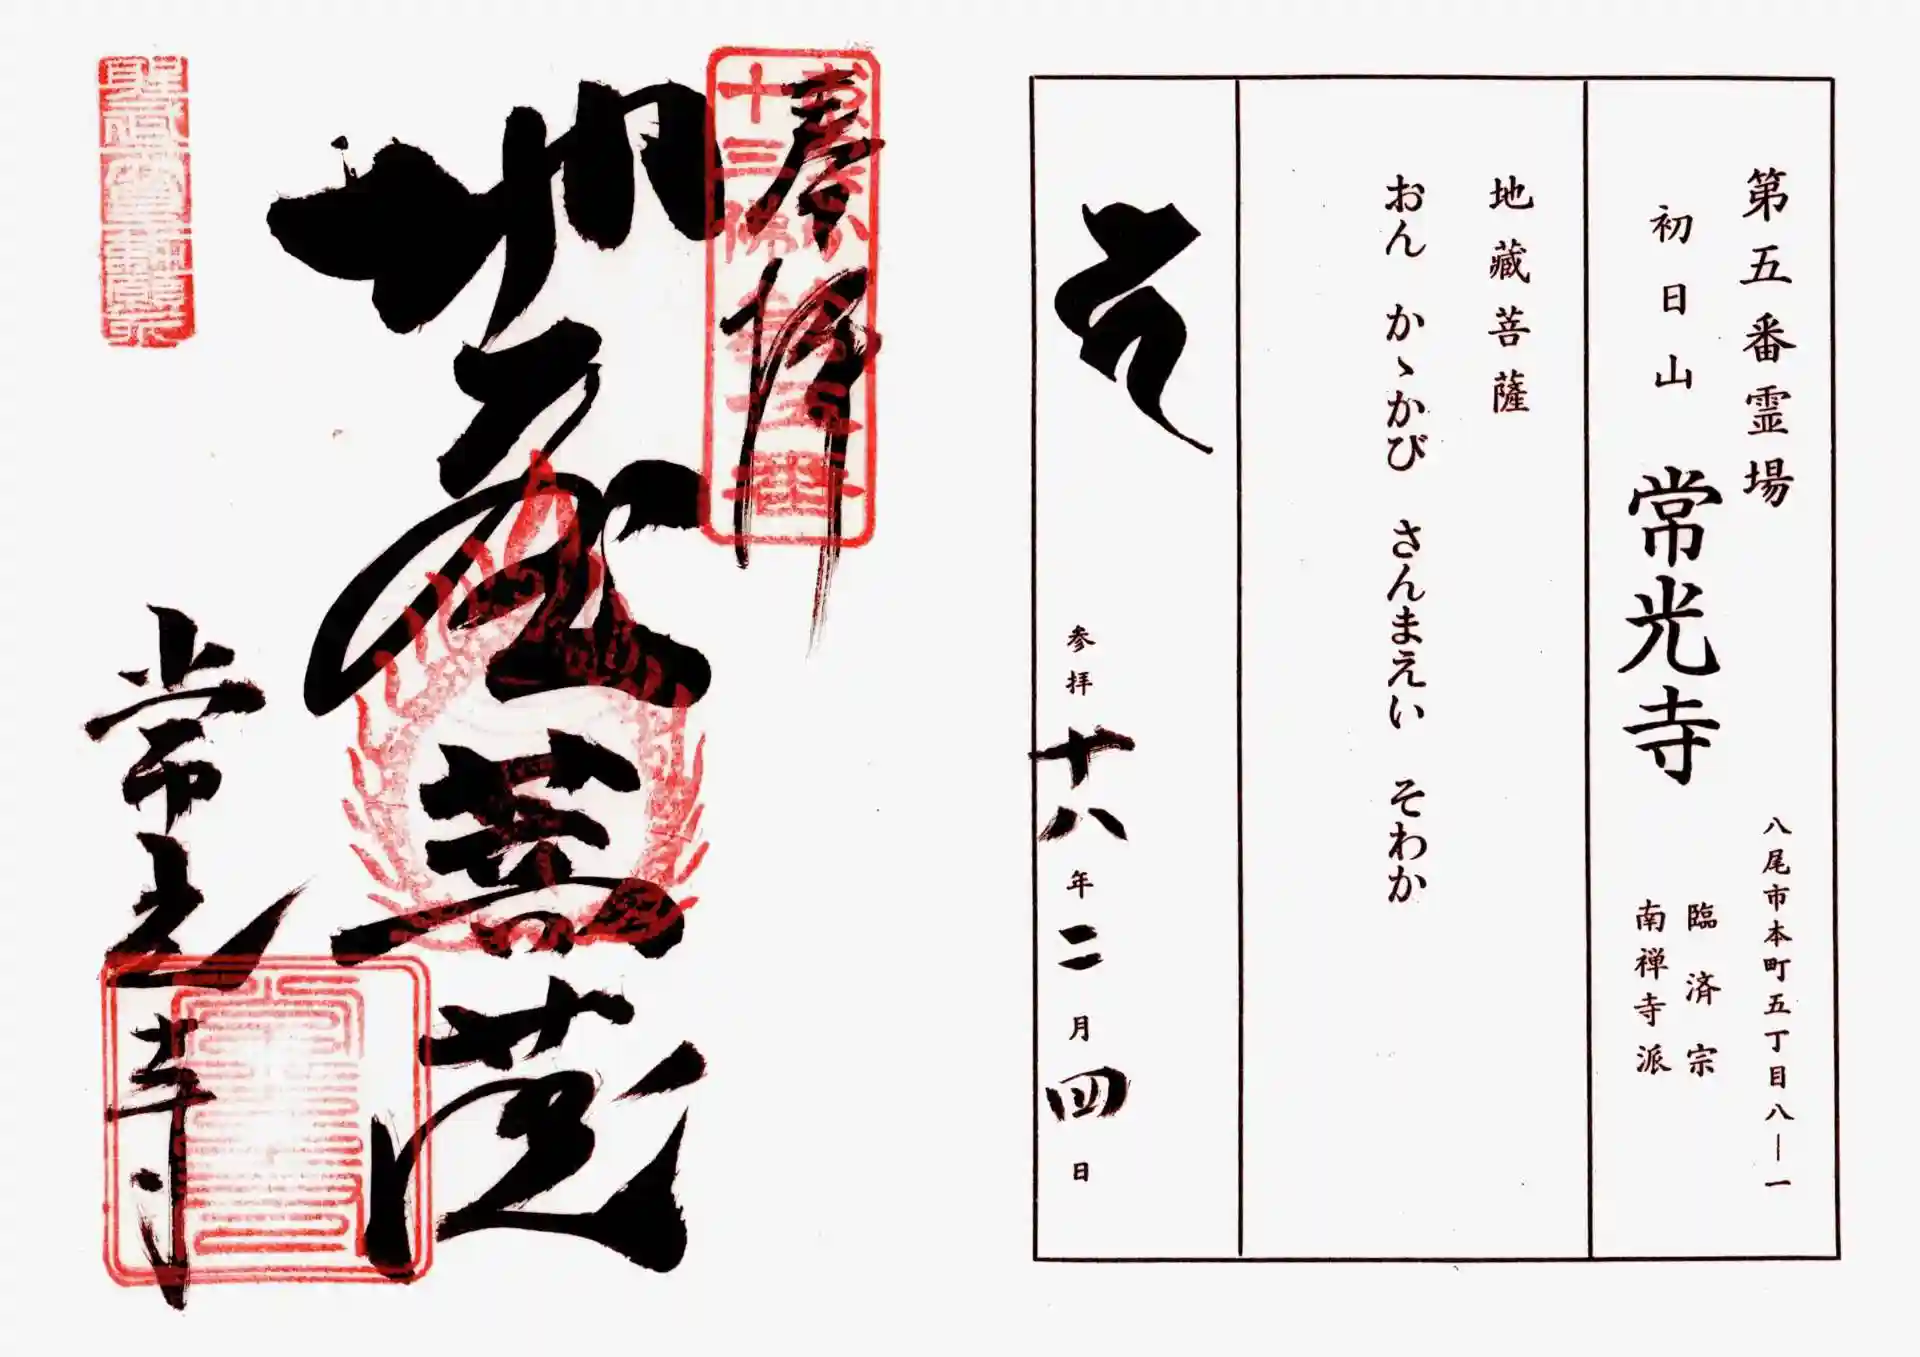 第五番霊場
初日山 常光寺
八尾市本町五丁目八―一
臨済宗
南禅寺派
地藏菩薩
おん かゝかび さんまえい そわか
参拝 十八年二月四日
奉拝
十三佛
第五番
地蔵菩薩
常光寺